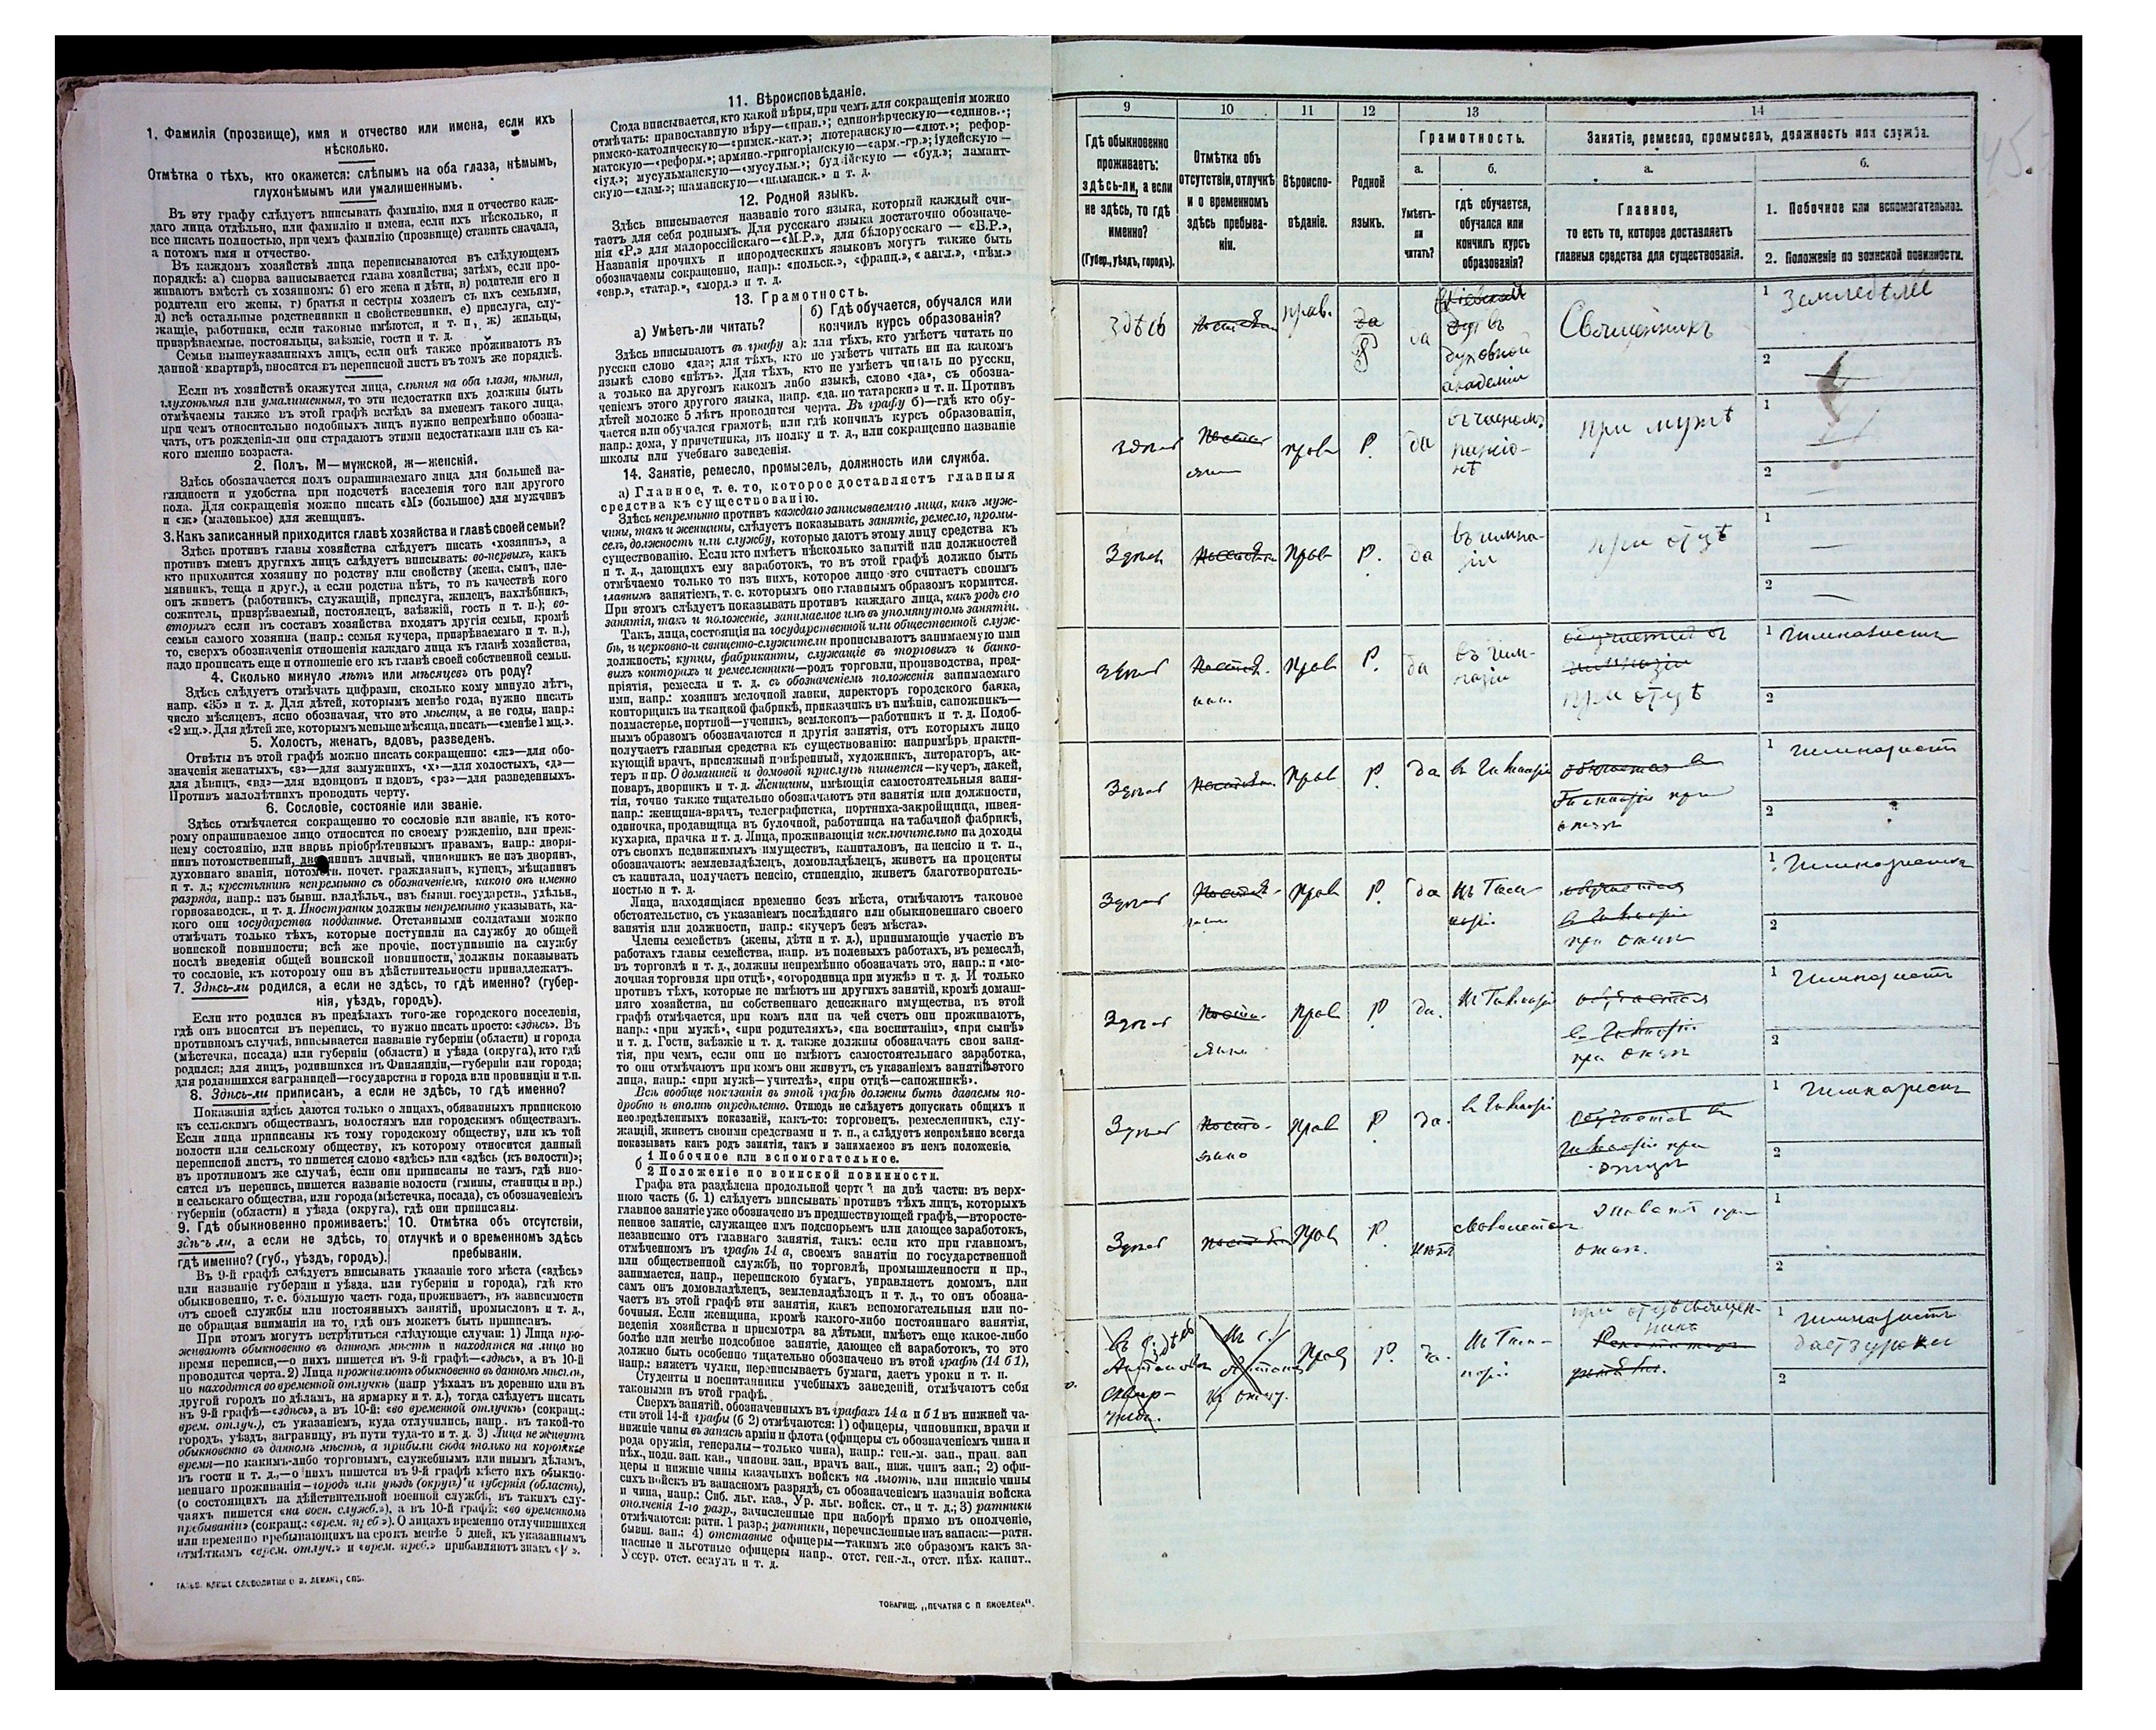 1. Фамилія (прозвище), имя и отчество или имена, если ихъ
нѣсколько.
Отмѣтка о тѣхъ, кто окажется: слѣпымъ на оба глаза, нѣмымъ,
глухонѣмымъ или умалишеннымъ.
Въ эту графу слѣдуетъ вписывать фамилію, имя и отчество каж-
даго лица отдѣльно, или фамилію и имена, если ихъ нѣсколько, и
все писать полностью, при чемъ фамилію (прозвище) ставить сначала,
а потомъ имя и отчество.
Въ каждомъ хозяйствѣ лица переписываются въ слѣдующемъ
порядкѣ: а) сперва записывается глава хозяйства; затѣмъ, если про-
живаютъ вмѣстѣ съ хозяиномъ: б) его жена и дѣти, в) родители его и
родители его жены, г) братья и сестры хозяевъ съ ихъ семьями,
д) всѣ остальные родственники и свойственники, е) прислуга, слу-
жащіе, работники, если таковые имѣются, и т. п., ж) жильцы,
призрѣваемые, постояльцы, заѣзжіе, гости и т. д.
Семьи вышеуказанныхъ лицъ, если онѣ также проживаютъ въ
данной квартирѣ, вносятся въ переписной листъ въ томъ же порядкѣ.
Если въ хозяйствѣ окажутся лица, слѣпыя на оба глаза, нѣмыя,
глухонѣмыя или умалишенныя, то эти недостатки ихъ должны быть
отмѣчаемы также въ этой графѣ вслѣдъ за именемъ такого лица.
при чемъ относительно подобныхъ лицъ нужно непремѣнно обозна-
чать, отъ рожденія-ли они страдаютъ этими недостатками или съ ка-
кого именно возраста.
2. Полъ, М—мужской, ж—женскій.
Здѣсь обозначается полъ опрашиваемаго лица для большей на-
глядности и удобства при подсчетѣ населенія того или другого
пола. Для сокращенія можно писать «М» (большое) для мужчинъ
и «ж» (маленькое) для женщинъ.
3. Какъ записанный приходится главѣ хозяйства и главѣ своей семьи?
Здѣсь противъ главы хозяйства слѣдуетъ писать «хозяинъ», а
противъ именъ другихъ лицъ слѣдуетъ вписывать: во-первыхъ, какъ
кто приходится хозяину по родству или свойству (жена, сынъ, пле-
мянникъ, теща и друг.), а если родства нѣтъ, то въ качествѣ кого
онъ живетъ (работникъ, служащій, прислуга, жилецъ, нахлѣбникъ,
сожитель, призрѣваемый, постоялецъ, заѣзжій, гость и т. п.); во-
вторыхъ если въ составъ хозяйства входятъ другія семьи, кромѣ
семьи самого хозяина (напр.: семья кучера, призрѣваемаго и т. п.),
то, сверхъ обозначенія отношенія каждаго лица къ главѣ хозяйства,
надо прописать еще и отношеніе его къ главѣ своей собственной семьи.
4. Сколько минуло лѣтъ или мѣсяцевъ отъ роду?
Здѣсь слѣдуетъ отмѣчать цифрами, сколько кому минуло лѣтъ,
напр. «35» и т. д. Для дѣтей, которымъ менѣе года, нужно писать
число мѣсяцевъ, ясно обозначая, что это мѣсяцы, а не годы, напр.:
«2 мц.». Для дѣтей же, которымъ меньше мѣсяца, писать—«менѣе 1 мц.».
5. Холостъ, женатъ, вдовъ, разведенъ.
Отвѣты въ этой графѣ можно писать сокращенно: «ж»—для обо-
значенія женатыхъ, «з»—для замужнихъ, «х»—для холостыхъ, «д»—
для дѣвицъ, «вд»—для вдовцовъ и вдовъ, «рз»—для разведенныхъ.
Противъ малолѣтнихъ проводить черту.
6. Сословіе, состояніе или званіе.
Здѣсь отмѣчается сокращенно то сословіе или званіе, къ кото-
рому опрашиваемое лицо относится по своему рожденію, или преж-
нему состоянію, или вновь пріобрѣтеннымъ правамъ, напр.: дворя-
нинъ потомственный, дворянинъ личный, чиновникъ не изъ дворянъ,
духовнаго званія, потомств. почет. гражданинъ, купецъ, мѣщанинъ
и т. д.; крестьянинъ непремѣнно съ обозначеніемъ, какого онъ именно
разряда, напр.: изъ бывш. владѣльч., изъ бывш. государств., удѣльн.,
горнозаводск., и т. д. Иностранцы должны непремѣнно указывать, ка-
кого они государства подданные. Отставными солдатами можно
отмѣчать только тѣхъ, которые поступили на службу до общей
воинской повинности; всѣ же прочіе, поступившіе на службу
послѣ введенія общей воинской повинности, должны показывать
то сословіе, къ которому они въ дѣйствительности принадлежатъ.
7. Здѣсь-ли родился, а если не здѣсь, то гдѣ именно? (губер-
нія, уѣздъ, городъ).
Если кто родился въ предѣлахъ того-же городского поселенія,
гдѣ онъ вносится въ перепись, то нужно писать просто: «здѣсь». Въ
противномъ случаѣ, вписывается названіе губерніи (области) и города
(мѣстечка, посада) или губерніи (области) и уѣзда (округа), кто гдѣ
родился; для лицъ, родившихся въ Финляндіи,—губерніи или города;
для родившихся заграницей—государства и города или провинціи и т.п.
8. Здѣсь-ли приписанъ, а если не здѣсь, то гдѣ именно?
Показанія здѣсь даются только о лицахъ, обязанныхъ припискою
къ сельскимъ обществамъ, волостямъ или городскимъ обществамъ.
Если лица приписаны къ тому городскому обществу, или къ той
волости или сельскому обществу, къ которому относится данный
переписной листъ, то пишется слово «здѣсь» или «здѣсь (къ волости)»;
въ противномъ же случаѣ, если они приписаны не тамъ, гдѣ вно-
сятся въ перепись, пишется названіе волости (гмины, станицы и пр.)
и сельскаго общества, или города (мѣстечка, посада), съ обозначеніемъ
губерніи (области) и уѣзда (округа), гдѣ они приписаны.
9. Гдѣ обыкновенно проживаетъ:
здѣсь ли, а если не здѣсь, то
гдѣ именно? (губ., уѣздъ, городъ).
10. Отмѣтка объ отсутствіи,
отлучкѣ и о временномъ здѣсь
пребываніи.
Въ 9-й графѣ слѣдуетъ вписывать указаніе того мѣста («здѣсь»
или названіе губерніи и уѣзда. или губерніи и города), гдѣ кто
обыкновенно, т. е. большую часть года, проживаетъ, въ зависимости
отъ своей службы или постоянныхъ занятій, промысловъ и т. д.,
не обращая вниманія на то, гдѣ онъ можетъ быть приписанъ.
При этомъ могутъ встрѣтиться слѣдующіе случаи: 1) Лица про-
живаютъ обыкновенно въ данномъ мѣстѣ и находятся на лицо во
время переписи,—о нихъ пишется въ 9-й графѣ—«здѣсь», а въ 10-й
проводится черта. 2) Лица проживаютъ обыкновенно въ данномъ мѣстѣ,
но находятся во временной отлучкѣ (напр уѣхалъ въ деревню или въ
другой городъ по дѣламъ, на ярмарку и т. д.), тогда слѣдуетъ писать
въ 9-й графѣ—«здѣсь», а въ 10-й: «во временной отлучкѣ» (сокращ.:
врем. отлуч.), съ указаніемъ, куда отлучились, напр. въ такой-то
городъ, уѣздъ, заграницу, въ пути туда-то и т. д. 3) Лица не живутъ
обыкновенно въ данномъ мѣстѣ, а прибыли сюда только на короткое
время—по какимъ-либо торговымъ, служебнымъ или инымъ дѣламъ,
въ гости и т. д.,—о нихъ пишется въ 9-й графѣ мѣсто ихъ обыкно-
веннаго проживанія—городъ или уѣздъ (округъ) и губернія (область),
(о состоящихъ на дѣйствительной военной службѣ, въ такихъ слу-
чаяхъ пишется «на воен. служб.»), а въ 10-й графѣ: «во временномъ
пребываніи» (сокращ.: «врем. преб.»). О лицахъ временно отлучившихся
или временно пребывающихъ на срокъ менѣе 5 дней, къ указаннымъ
отмѣткамъ «врем. отлуч.» и «врем. преб.» прибавляютъ знакъ
ТОВАРИЩ. „ПЕЧАТНЯ С П ЯКОВЛЕВА“.
11. Вѣроисповѣданіе.
Сюда вписывается, кто какой вѣры, при чемъ для сокращенія можно
отмѣчать: православную вѣру—«прав.»; единовѣрческую—«единов.»;
римско-католическую—«римск.-кат.»; лютеранскую—«лют.»; рефор-
матскую—«реформ.»; армяно.-григоріанскую—«арм.-гр.»; іудейскую—
«іуд.»; мусульманскую—«мусульм.»; буддійскую — «буд.»; ламаит-
скую—«лам.»; шаманскую—«шаманск.» и т. д.
12. Родной языкъ.
Здѣсь вписывается названіе того языка, который каждый счи-
таетъ для себя роднымъ. Для русскаго языка достаточно обозначе-
нія «Р.» для малороссійскаго—«М.Р.», для бѣлорусскаго — «Б.Р.»,
Названія прочихъ и инородческихъ языковъ могутъ также быть
обозначаемы сокращенно, напр.: «польск.», «франц.», «англ.», «нѣм.»
«евр.», «татар.», «морд.» и т. д.
13. Грамотность.
а) Умѣетъ-ли читать?
б) Гдѣ обучается, обучался или
кончилъ курсъ образованія?
Здѣсь вписываютъ въ графу а): для тѣхъ, кто умѣетъ читать по
русски слово «да»; для тѣхъ, кто не умѣетъ читать ни на какомъ
языкѣ слово «нѣтъ». Для тѣхъ, кто не умѣетъ читать по русски,
а только на другомъ какомъ либо языкѣ, слово «да», съ обозна-
ченіемъ этого другого языка, напр. «да. по татарски» и т. п. Противъ
дѣтей моложе 5 лѣтъ проводится черта. Въ графу б)—гдѣ кто обу-
чается или обучался грамотѣ, или гдѣ кончилъ курсъ образованія,
напр.: дома, у причетника, въ полку и т. д., или сокращенно названіе
школы или учебнаго заведенія.
14. Занятіе, ремесло, промыселъ, должность или служба.
а) Главное, т. е. то, которое доставляетъ главныя
средства къ существованію.
Здѣсь непремѣнно противъ каждаго записываемаго лица, какъ муж-
чины, такъ и женщины, слѣдуетъ показывать занятіе, ремесло, промы-
селъ, должность или службу, которые даютъ этому лицу средства къ
существованію. Если кто имѣетъ нѣсколько занятій или должностей
и т. д., дающихъ ему заработокъ, то въ этой графѣ должно быть
отмѣчаемо только то изъ нихъ, которое лицо это считаетъ своимъ
главнымъ занятіемъ, т. е. которымъ оно главнымъ образомъ кормится.
При этомъ слѣдуетъ показывать противъ каждаго лица, какъ родъ его
занятія, такъ и положеніе, занимаемое имъ въ упомянутомъ занятіи.
Такъ, лица, состоящія на государственной или общественной служ-
бѣ, и церковно-и священно-служители прописываютъ занимаемую ими
должность; купцы, фабриканты, служащіе въ торговыхъ и банко-
выхъ конторахъ и ремесленники—родъ торговли, производства, пред-
пріятія, ремесла и т. д. съ обозначеніемъ положенія занимаемаго
ими, напр.: хозяинъ мелочной лавки, директоръ городского банка,
конторщикъ на ткацкой фабрикѣ, приказчикъ въ имѣніи, сапожникъ—
подмастерье, портной—ученикъ, землекопъ—работникъ и т. д. Подоб-
нымъ образомъ обозначаются и другія занятія, отъ которыхъ лицо
получаетъ главныя средства къ существованію: напримѣръ практи-
кующій врачъ, присяжный повѣренный, художникъ, литераторъ, ак-
теръ и пр. О домашней и домовой прислугѣ пишется—кучеръ, лакей,
поваръ, дворникъ и т. д. Женщины, имѣющія самостоятельныя заня-
тія, точно также тщательно обозначаютъ эти занятія или должности,
напр.: женщина-врачъ, телеграфистка, портниха-закройщица, швея-
одиночка, продавщица въ булочной, работница на табачной фабрикѣ,
кухарка, прачка и т. д. Лица, проживающія исключительно на доходы
отъ своихъ недвижимыхъ имуществъ, капиталовъ, на пенсію и т. п.,
обозначаютъ: землевладѣлецъ, домовладѣлецъ, живетъ на проценты
съ капитала, получаетъ пенсію, стипендію, живетъ благотворитель-
ностью и т. д.
Лица, находящіяся временно безъ мѣста, отмѣчаютъ таковое
обстоятельство, съ указаніемъ послѣдняго или обыкновеннаго своего
занятія или должности, напр.: «кучеръ безъ мѣста».
Члены семействъ (жены, дѣти и т. д.), принимающіе участіе въ
работахъ главы семейства, напр. въ полевыхъ работахъ, въ ремеслѣ,
въ торговлѣ и т. д., должны непремѣнно обозначать это, напр.: и «ме-
лочная торговля при отцѣ», «огородница при мужѣ» и т. д. И только
противъ тѣхъ, которые не имѣютъ ни другихъ занятій, кромѣ домаш-
няго хозяйства, ни собственнаго денежнаго имущества, въ этой
графѣ отмѣчается, при комъ или на чей счетъ они проживаютъ,
напр.: «при мужѣ», «при родителяхъ», «на воспитаніи», «при сынѣ»
и т. д. Гости, заѣзжіе и т. д. также должны обозначать свои заня-
тія, при чемъ, если они не имѣютъ самостоятельнаго заработка,
то они отмѣчаютъ при комъ они живутъ, съ указаніемъ занятій этого
лица, напр.: «при мужѣ—учителѣ», «при отцѣ—сапожникѣ».
Всѣ вообще показанія въ этой графѣ должны быть даваемы по-
дробно и вполнѣ опредѣленно. Отнюдь не слѣдуетъ допускать общихъ и
неопредѣленныхъ показаній, какъ-то: торговецъ, ремесленникъ, слу-
жащій, живетъ своими средствами и т. п., а слѣдуетъ непремѣнно всегда
показывать какъ родъ занятія, такъ и занимаемое въ немъ положеніе.
б
1 Побочное или вспомогательное.
2 Положеніе по воинской повинности.
Графа эта раздѣлена продольной чертой на двѣ части: въ верх-
нюю часть (б. 1) слѣдуетъ вписывать противъ тѣхъ лицъ, которыхъ
главное занятіе уже обозначено въ предшествующей графѣ,—второсте-
пенное занятіе, служащее имъ подспорьемъ или дающее заработокъ,
независимо отъ главнаго занятія, такъ: если кто при главномъ,
отмѣченномъ въ графѣ 14 а, своемъ занятіи по государственной
или общественной службѣ, по торговлѣ, промышленности и пр.,
занимается, напр., перепискою бумагъ, управляетъ домомъ, или
самъ онъ домовладѣлецъ, землевладѣлецъ и т. д., то онъ обозна-
чаетъ въ этой графѣ эти занятія, какъ вспомогательныя или по-
бочныя. Если женщина, кромѣ какого-либо постояннаго занятія,
веденія хозяйства и присмотра за дѣтьми, имѣетъ еще какое-либо
болѣе или менѣе подсобное занятіе, дающее ей заработокъ, то это
должно быть особенно тщательно обозначено въ этой графѣ (14 б 1),
напр.: вяжетъ чулки, переписываетъ бумаги, даетъ уроки и т. п.
Студенты и воспитанники учебныхъ заведеній, отмѣчаютъ себя
таковыми въ этой графѣ.
Сверхъ занятій, обозначенныхъ въ графахъ 14 а и б 1 въ нижней ча-
сти этой 14-й графы (б 2) отмѣчаются: 1) офицеры, чиновники, врачи и
нижніе чины въ запасѣ арміи и флота (офицеры съ обозначеніемъ чина и
рода оружія, генералы—только чина), напр.: ген.-м. зап., прап. зап
пѣх., подп. зап. кав., чиновн. зап., врачъ зап., ниж. чинъ зап.; 2) офи-
церы и нижніе чины казачьихъ войскъ на льготѣ, или нижніе чины
сихъ войскъ въ запасномъ разрядѣ, съ обозначеніемъ названія войска
и чина, напр.: Сиб. льг. каз., Ур. льг. войск. ст., и т. д.; 3) ратники
ополченія 1-го разр., зачисленные при наборѣ прямо въ ополченіе,
отмѣчаются: ратн. 1 разр.; ратники, перечисленные изъ запаса:—ратн.
бывш. зап.; 4) отставные офицеры—такимъ же образомъ какъ за-
пасные и льготные офицеры напр., отст. ген.-л., отст. пѣх. капит.,
Уссур. отст. есаулъ и т. д.
9 10 11 12 13 14
Гдѣ обыкновенно
проживаетъ:
здѣсь-ли, а если
не здѣсь, то гдѣ
именно?
(Губер., уѣздъ, городъ).
Отмѣтка объ
отсутствіи, отлучкѣ
и о временномъ
здѣсь пребыва-
ніи.
Вѣроиспо-
вѣданіе.
Родной
языкъ.
Грамотность.
а.
Умѣетъ-
ли
читать?
б.
гдѣ обучается,
обучался или
кончилъ курсъ
образованія?
Занятіе, ремесло, промыселъ, должность или служба.
а.
Главное,
то есть то, которое доставляетъ
главныя средства для существованія.
б.
1. Побочное или вспомогательное.
2. Положеніе по воинской повинности.
45.
здѣсь прав. да Р да
въ
духовной
академіи
Священникъ
1 Земледѣліе
2
здѣсь прав Р. да
въ частномъ
пансіо-
нѣ
при мужѣ
1
2
Здѣсь прав Р. да
въ гимна-
зіи
при отцѣ
1
2
здѣсь прав Р. да
въ гим-
назіи
обучается въ
гимназіи
при отцѣ
1 Гимназистъ
2
Здѣсь Прав Р да въ Гимназіи
обучается въ
Гимназіи при
отцѣ
1 Гимназистъ
2
Здѣсь Прав Р. да
въ Гим-
назіи
обучается
въ Гимназіи
при отцѣ
1 Гимназистка
2
Здѣсь прав Р да. въ Гимназіи
обучается
въ Гимназіи
при отцѣ
1 Гимназистъ
2
Здѣсь прав Р да. въ Гимназіи
обучается въ
Гимназіи при
отцѣ
1 Гимназистъ
2
Здѣсь прав Р нѣтъ
при
отцѣ.
1
2
Прав Р. да.
въ Гим-
назіи
при отцѣ священ-
никѣ
1 Гимназистъ
даетъ уроки
2